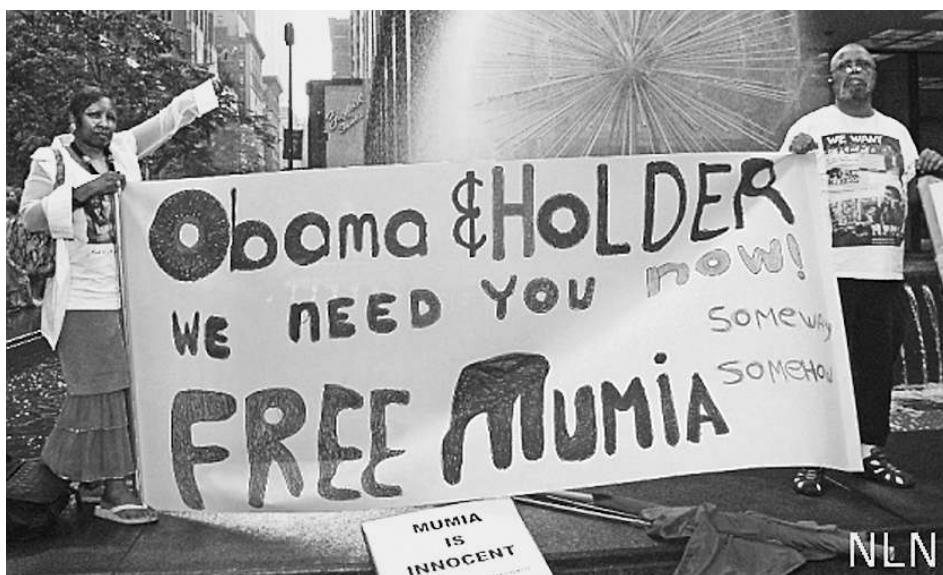 Obama & HOLDER
WE NEED YOU now!
SOMEWAY
SOMEHOW
FREE MUMIA
MUMIA
IS
INNOCENT
WE WANT
NLN